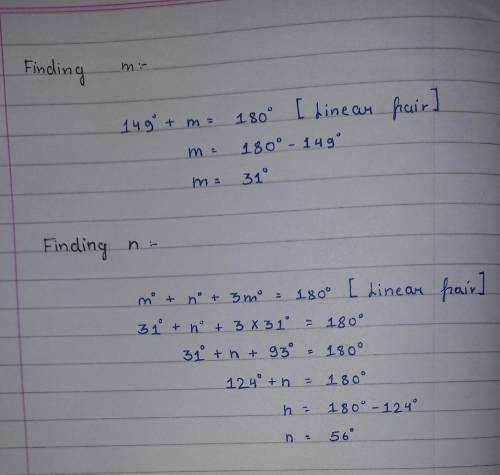 Finding m:-
149° + m = 180° [Linear pair]
m = 180° - 149°
m = 31°
Finding n:-
m° + n° + 3m° = 180° [Linear pair]
31° + n° + 3 × 31° = 180°
31° + n + 93° = 180°
124° + n = 180°
n = 180° - 124°
n = 56°